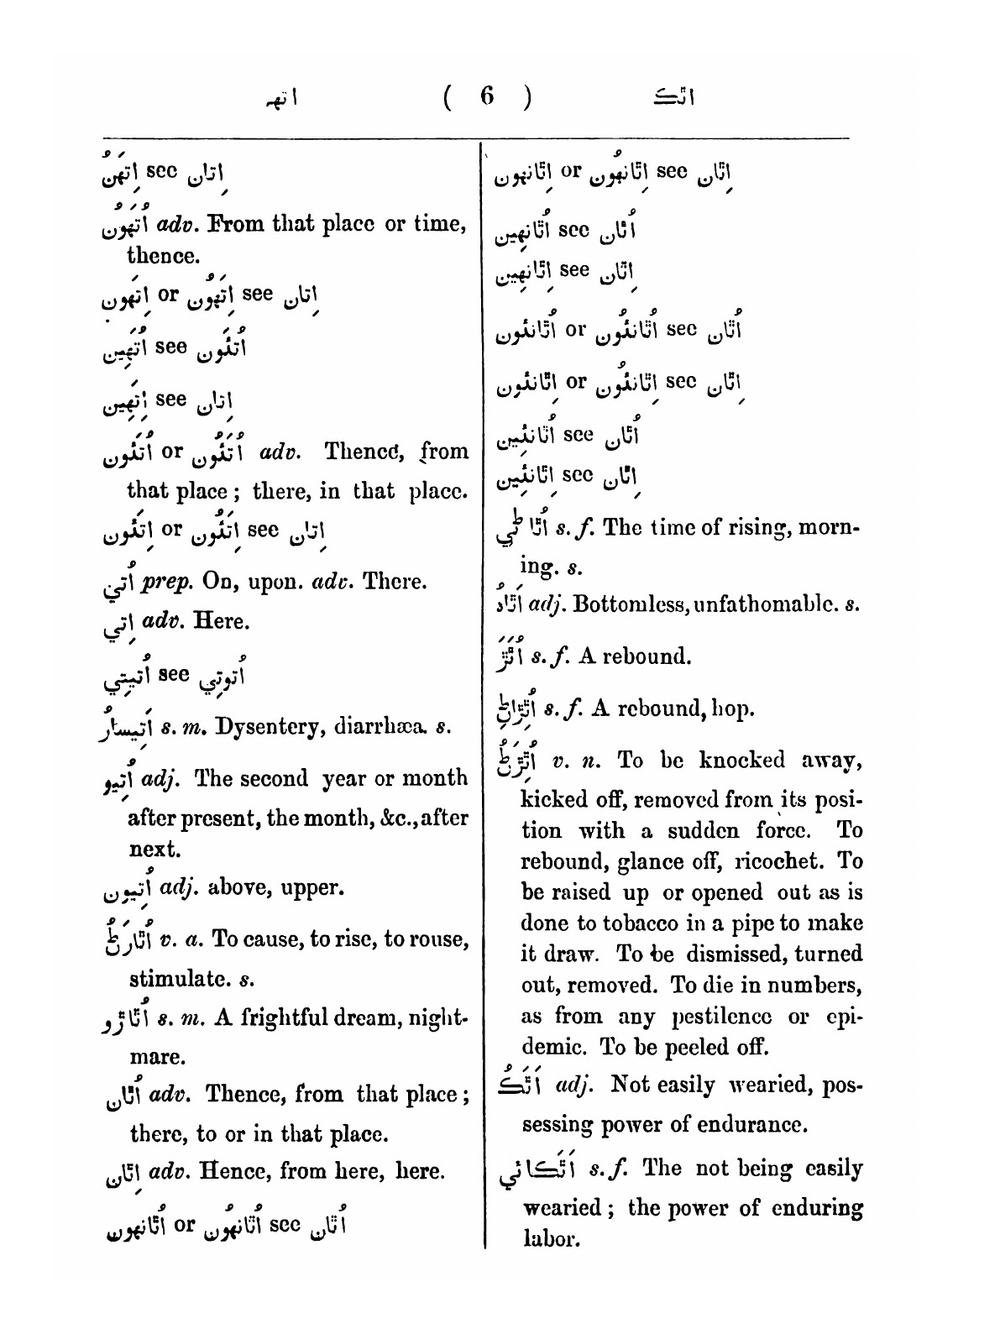 اتهہ ( 6 ) اٿڪ
اِتَهَنُ see اِتان
اُتَهُون adv. From that place or time,
thence.
اِتَهون or اِتَهُون see اِتان
اُتَهِين see اُتَئُون
اِتَهِين see اِتان
اُتَئون or اُتَئُون adv. Thence, from
that place; there, in that place.
اِتَئون or اِتَئُون see اِتان
اُتي prep. On, upon. adv. There.
اِتي adv. Here.
اُتيتِي see اُتوتِي
اَتِيسارُ s. m. Dysentery, diarrhæa. s.
اُتِيو adj. The second year or month
after present, the month, &c., after
next.
اُتِيون adj. above, upper.
v. a. To cause, to rise, to rouse,
stimulate. s.
s. m. A frightful dream, night-
mare.
اُٿان adv. Thence, from that place;
there, to or in that place.
اِٿان adv. Hence, from here, here.
اُٿانهون or اُٿانهُون see اُٿان
اِٿانهون or اِٿانهُون see اِٿان
اُٿانهِين see اُٿان
اِٿانهِين see اِٿان
اُٿانئون or اُٿانئُون see اُٿان
اِٿانئون or اِٿانئُون see اِٿان
اُٿانئِين see اُٿان
اِٿانئِين see اِٿان
s. f. The time of rising, morn-
ing. s.
adj. Bottomless, unfathomable. s.
s. f. A rebound.
s. f. A rebound, hop.
v. n. To be knocked away,
kicked off, removed from its posi-
tion with a sudden force. To
rebound, glance off, ricochet. To
be raised up or opened out as is
done to tobacco in a pipe to make
it draw. To be dismissed, turned
out, removed. To die in numbers,
as from any pestilence or epi-
demic. To be peeled off.
اَٿَڪُ adj. Not easily wearied, pos-
sessing power of endurance.
اَٿَڪائي s. f. The not being easily
wearied; the power of enduring
labor.